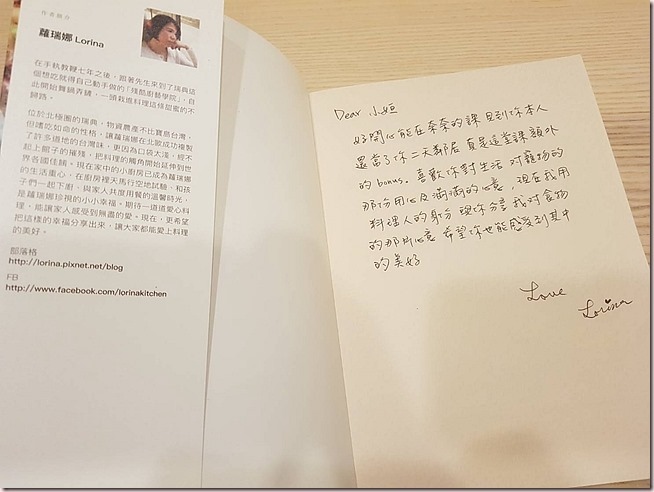 作者簡介
蘿瑞娜 Lorina
在手執教鞭七年之後，跟著先生來到了瑞典這
個想吃就得自己動手做的「殘酷廚藝學院」，自
此開始舞鍋弄鏟，一頭栽進料理這條甜蜜的不
歸路。
位於北極圈的瑞典，物資產不比寶島台灣，
但嗜吃如命的性格，讓蘿瑞娜在北歐成功複製
了許多道地的台灣味，更因為口袋太淺，經不
起上館子的摧殘，把料理的觸角開始延伸到世
界各國佳餚。現在家中的小廚房已成為蘿瑞娜
的生活重心，在廚房裡天馬行空地試驗，和孩
子們一起下廚，與家人共度用餐的溫馨時光，
是蘿瑞娜珍視的小小幸福。期待一道道愛心料
理，能讓家人感受到無盡的愛。現在，更希望
把這樣的幸福分享出來，讓大家都能愛上料理
的美好。
部落格
http://lorina.pixnet.net/blog
FB
http://www.facebook.com/lorinakitchen
Dear 小
好開心能在奈奈的課見到你本人
還當了你二天鄰居 真是這堂課額外
的 bonus. 喜歡你對生活 对寵物的
那份用心及滿滿的心意，現在我用
料理人的身分 跟你分享 我对食物
的那片心意 希望你也能感受到其中
的美好
Love
Lorina